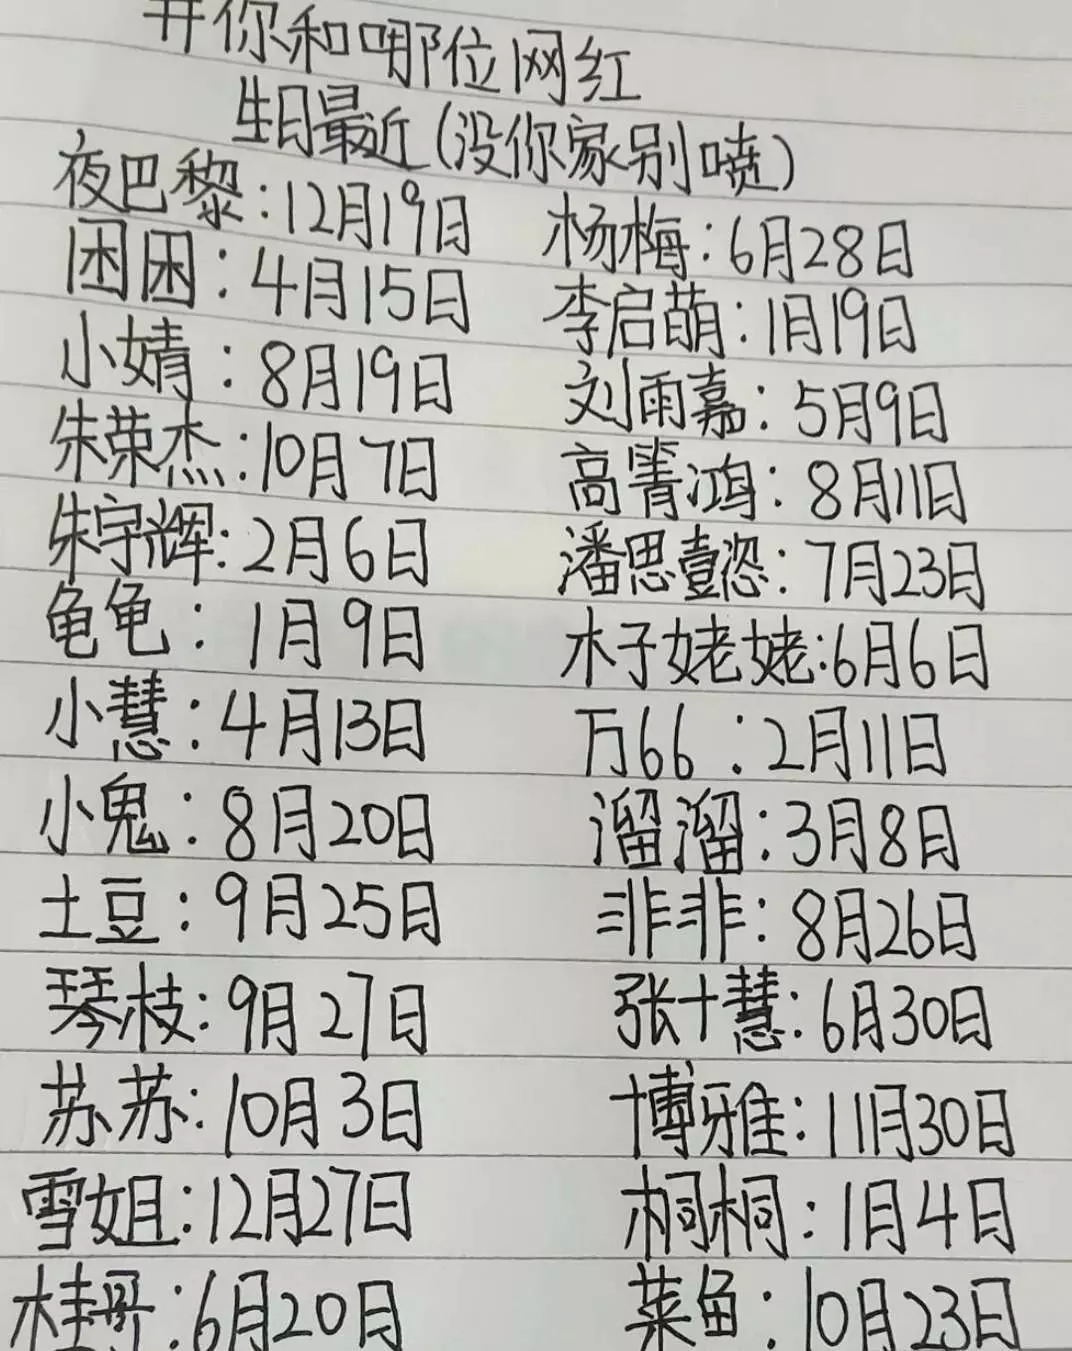 开你和哪位网红
生日最近(没你家别喷)
夜巴黎:12月19日
困困:4月15日
小婧:8月19日
朱荣杰:10月7日
朱宇辉:2月6日
龟龟:1月9日
小慧:4月13日
小鬼:8月20日
土豆:9月25日
琴枝:9月27日
苏苏:10月3日
雪姐:12月27日
桂哥:6月20日
杨梅:6月28日
李启萌:1月19日
刘雨嘉:5月9日
高箐鸿:8月11日
潘思壹恣:7月23日
木子姥姥:6月6日
万66:2月11日
溜溜:3月8日
三非非:8月26日
张十慧:6月30日
博雅:11月30日
桐桐:1月4日
菜鱼:10月23日